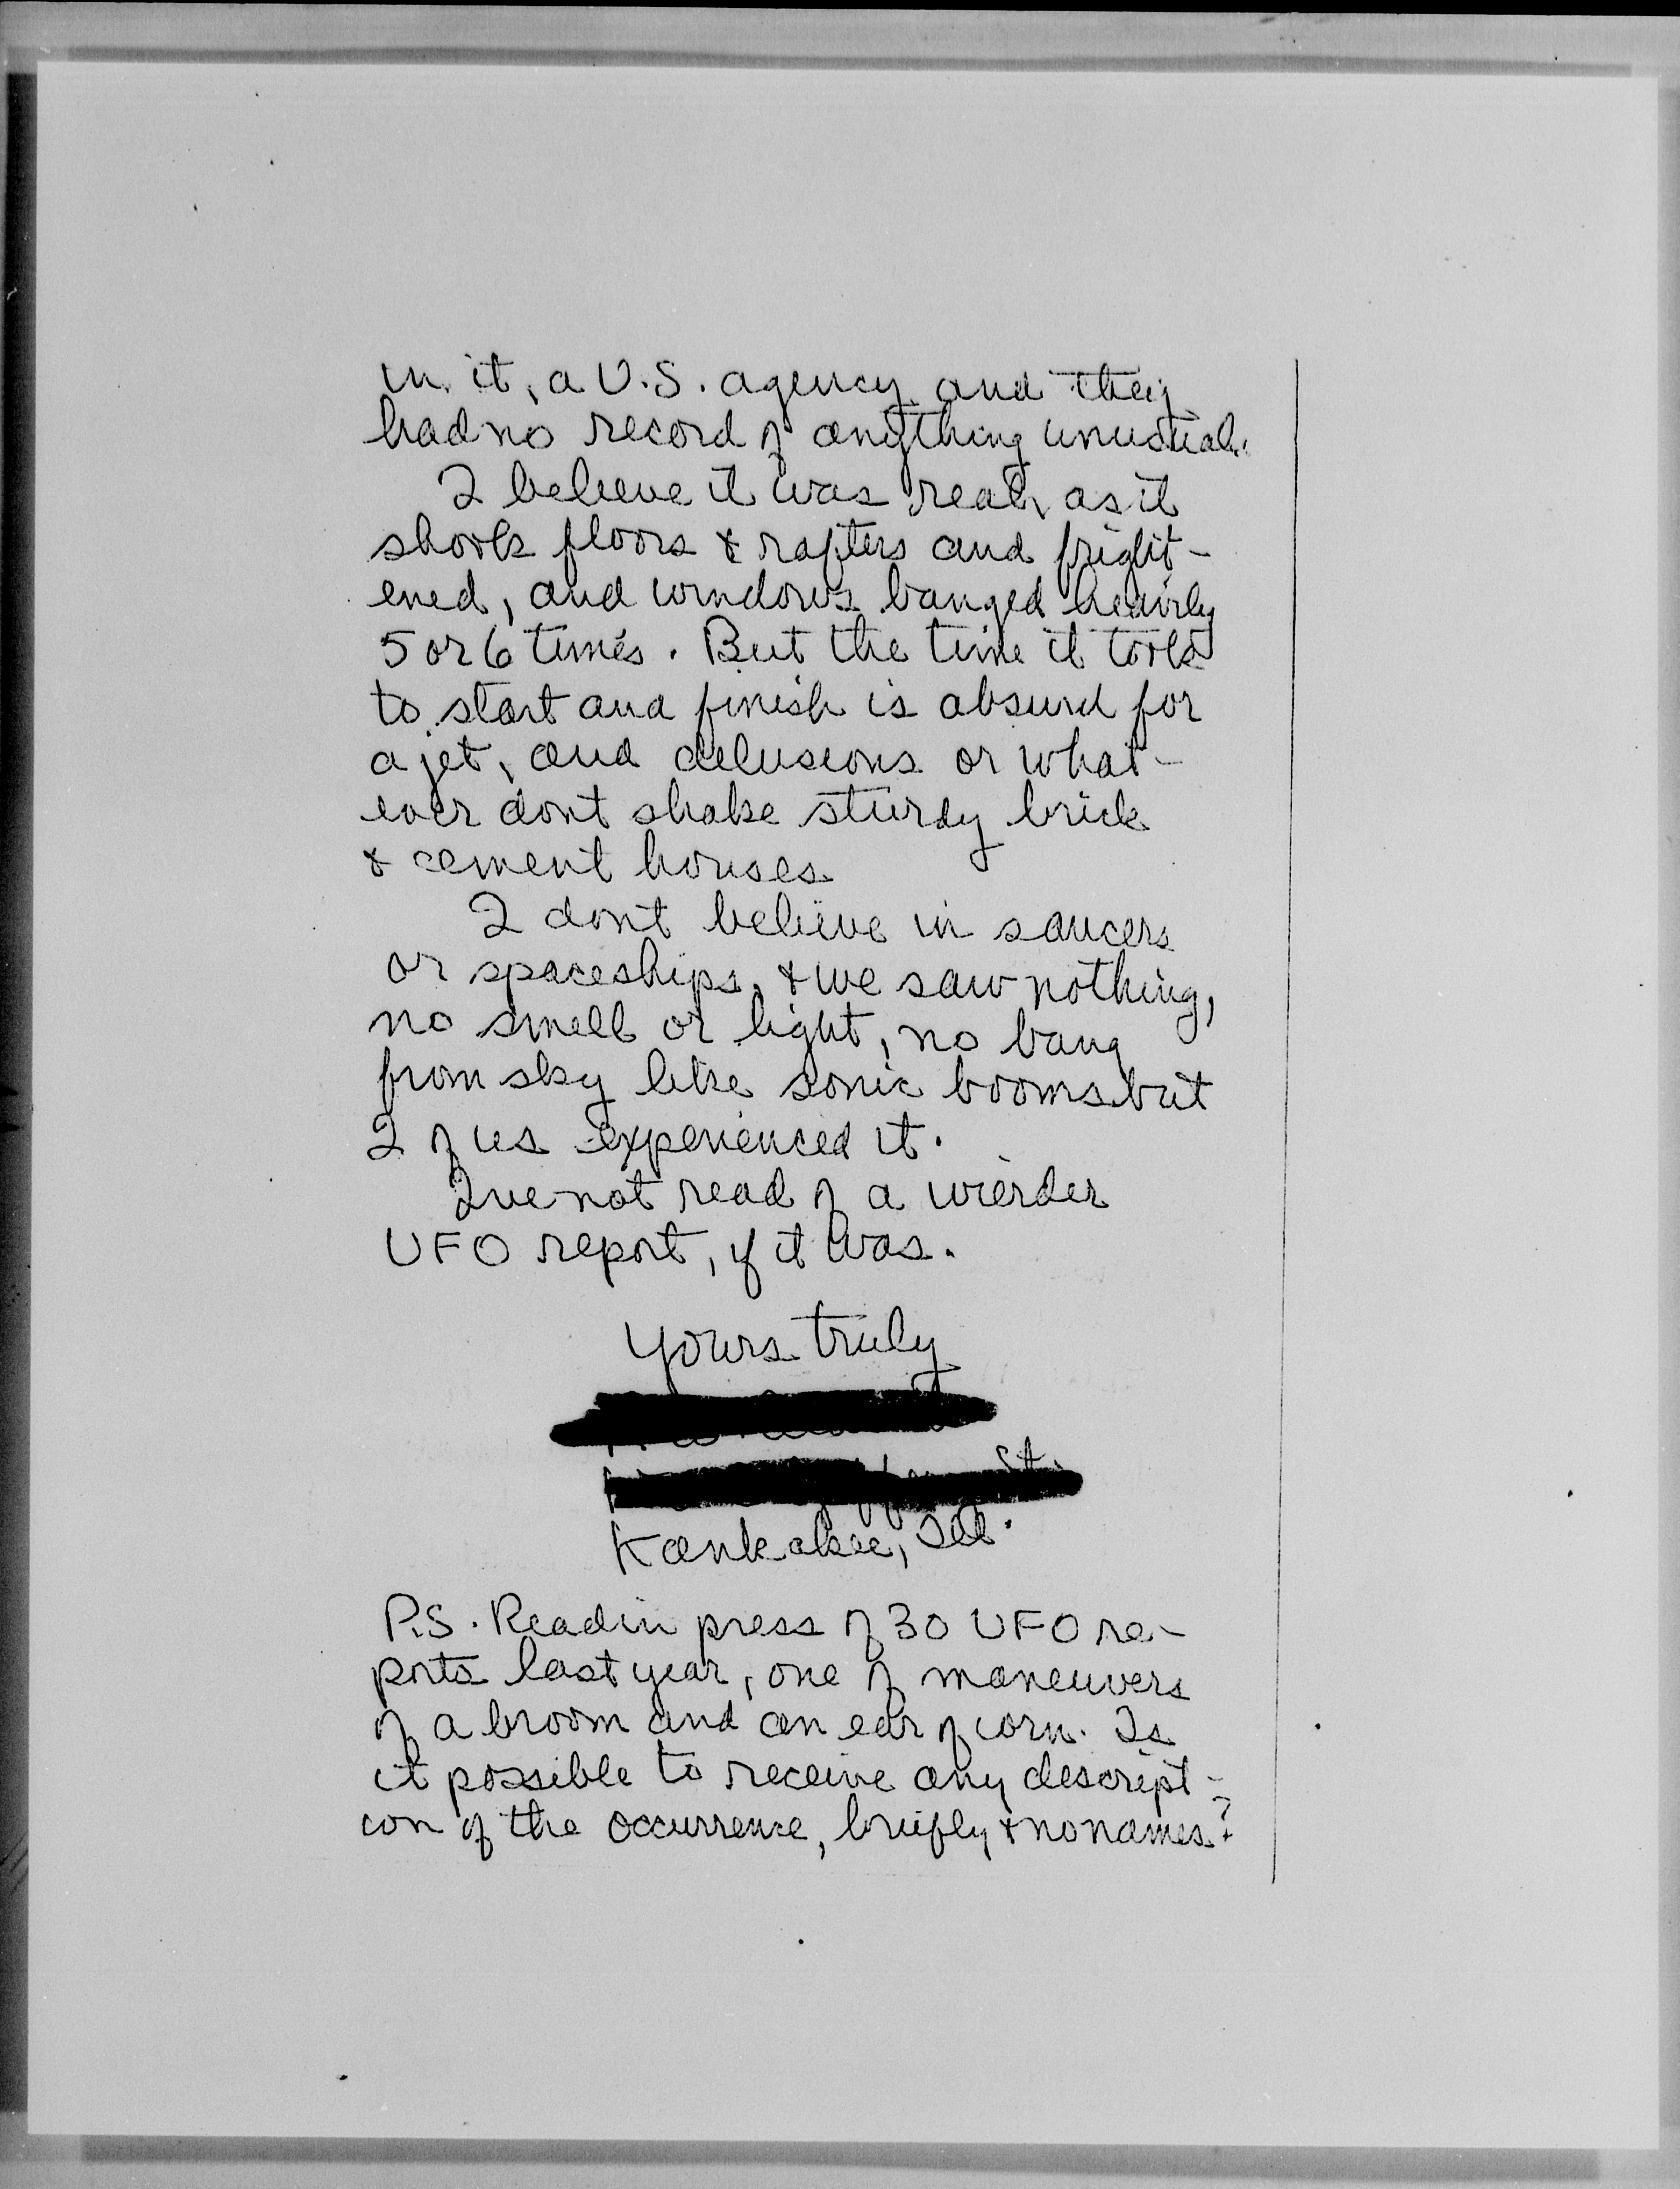 in it, a U.S. agency and they
had no record of anything unusual.
I believe it was real, as it
shook floors & rafters and fright-
ened, and windows banged heavily
5 or 6 times. But the time it took
to start and finish is absurd for
a jet, and delusions or what-
ever dont shake sturdy brick
& cement houses.
I don't believe in saucers
or spaceships, & we saw nothing,
no smell or light, no bang
from sky like sonic booms but
2 of us experienced it.
Ive not read of a wierder
UFO report, if it was.
Yours truly
St.
Kankakee, Ill.
P.S. Read in press of 30 UFO re-
ports last year, one of maneuvers
of a broom and an ear of corn. Is
it possible to receive any descript-
ion of the occurrence, briefly & no names?